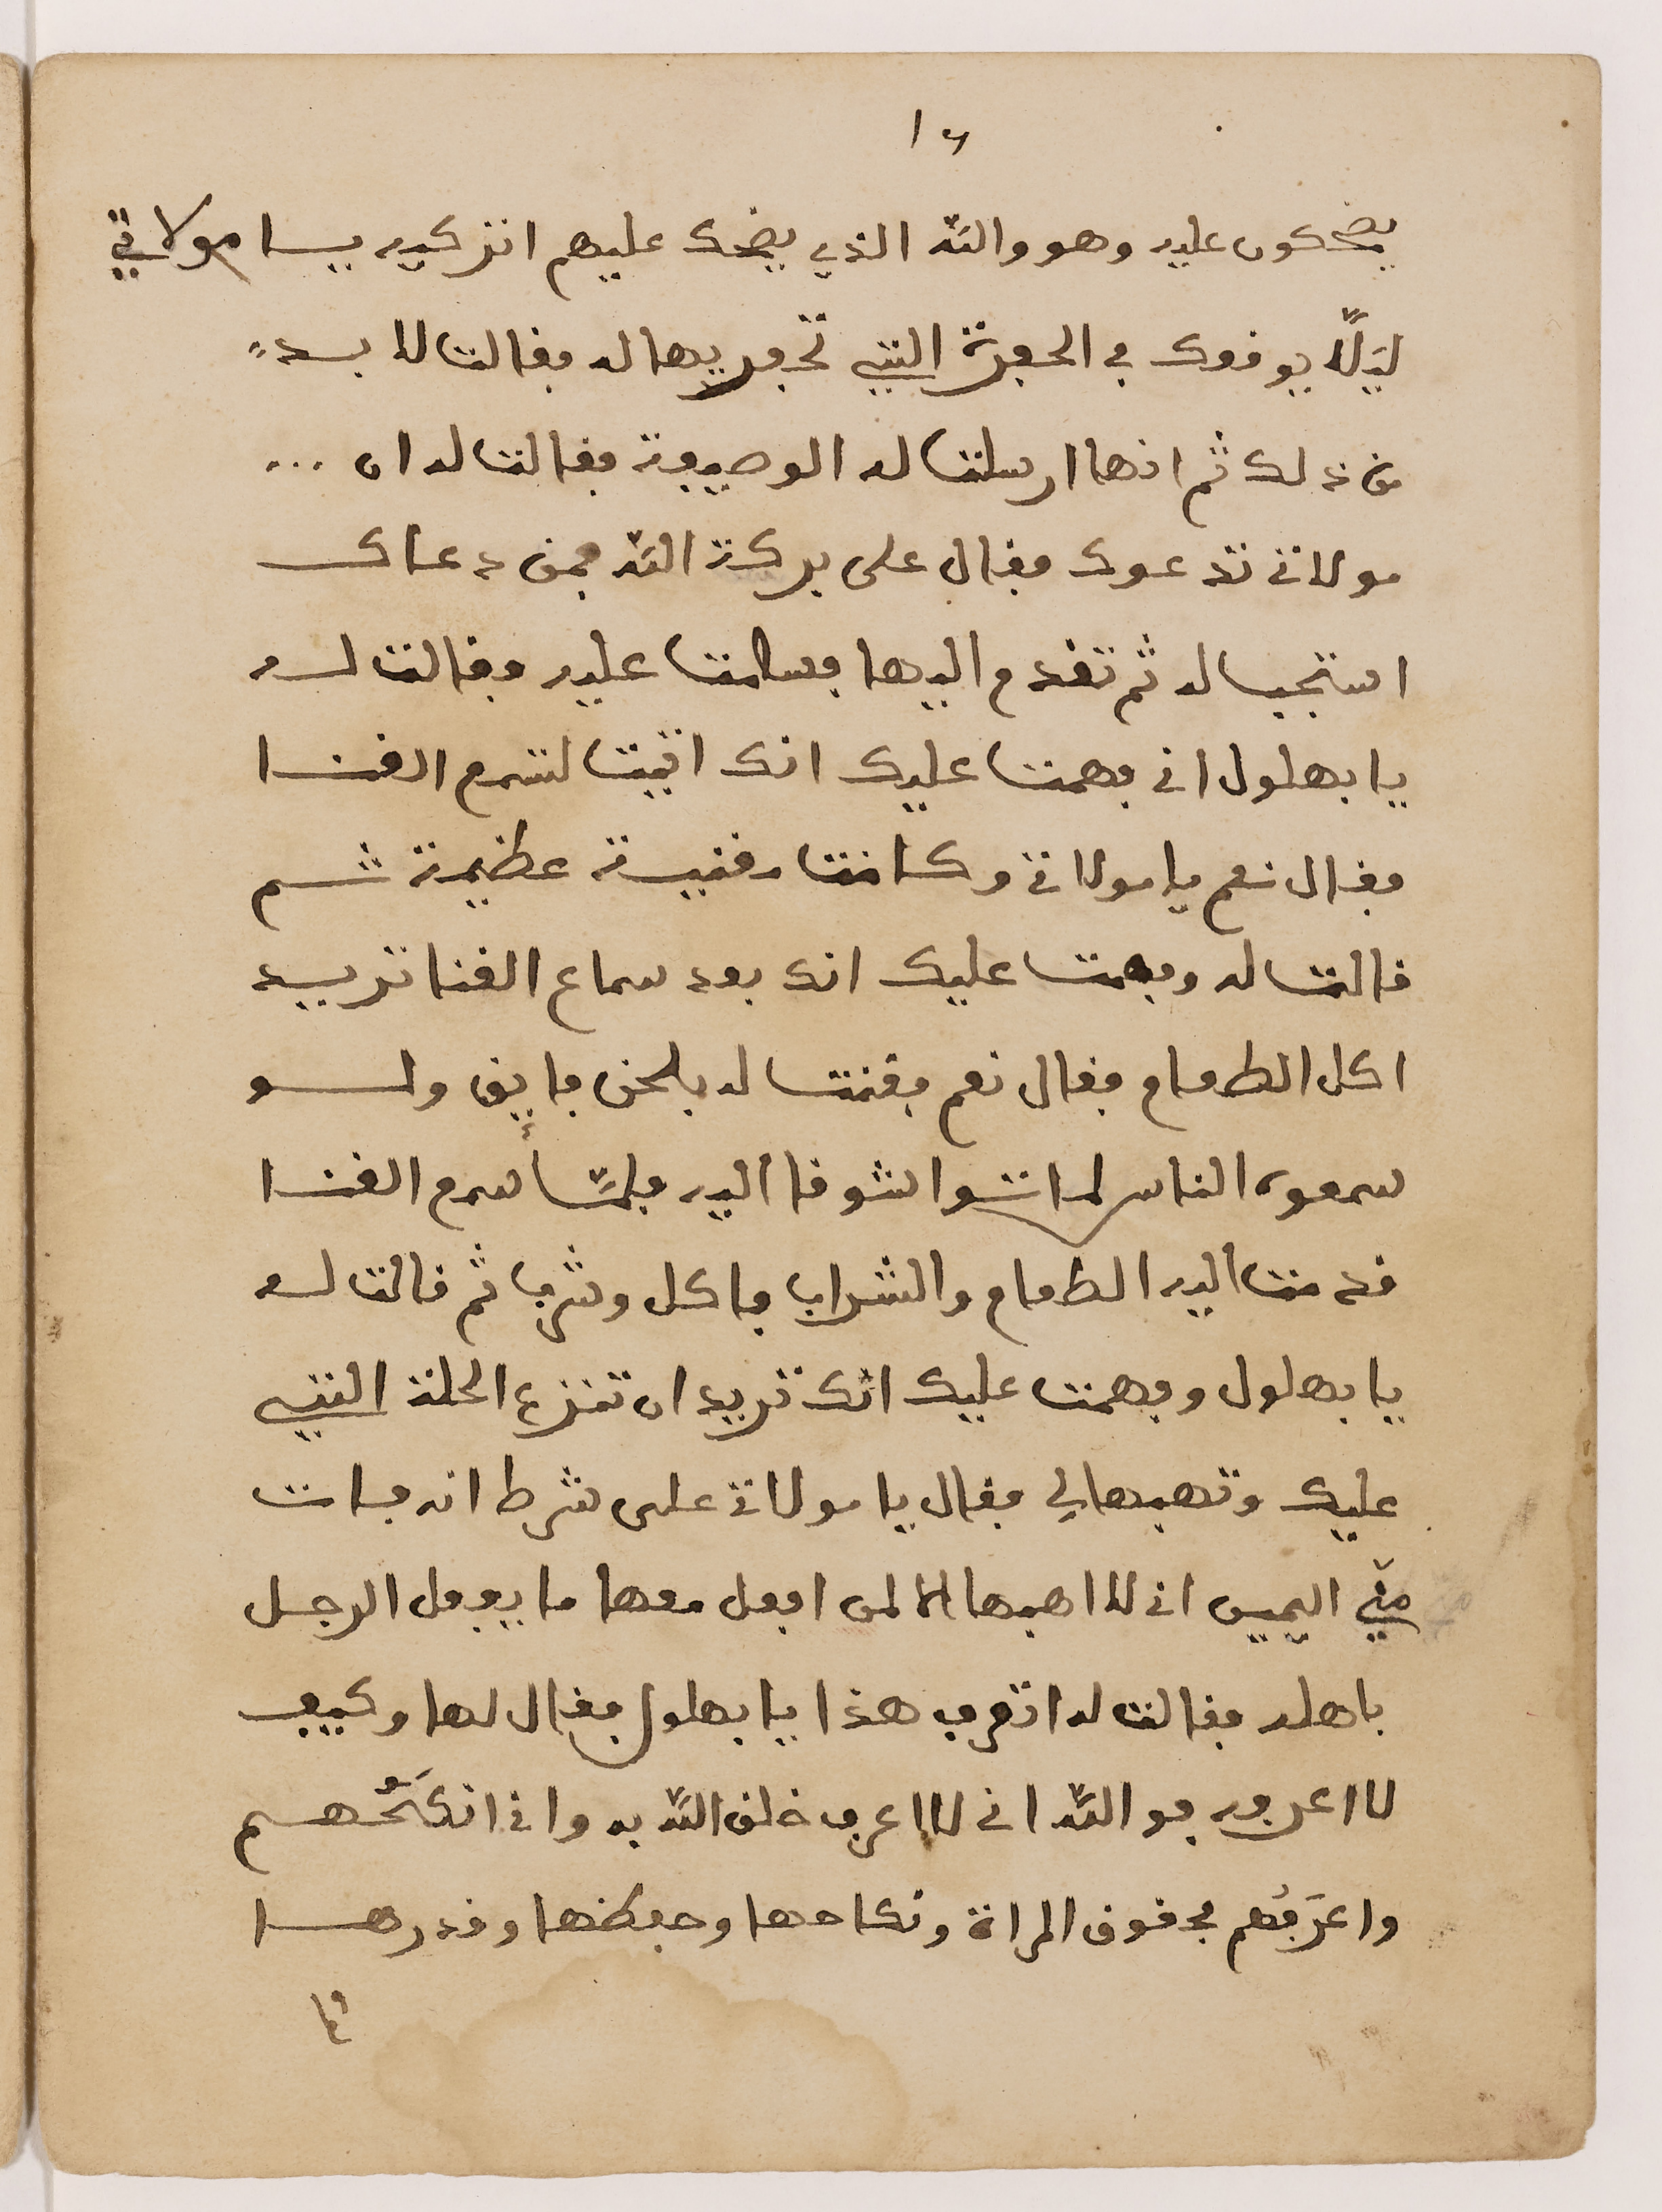 ١٦
يضحكون عليه وهو والله الذي يضحك عليهم اتركيه يا مولاتي
ليلّا يوقعك في الحفرة التي تحفريها له فقالت لا بد
من ذلك ثم انها ارسلت له الوصيفة فقالت له ان ...
مولاتي تدعوك فقال على بركة الله فمن دعاك
استجب له ثم تقدم اليها فسلمت عليه وقالت له
يا بهلول اني فهمت عليك انك اتيت لتسمع الغنا
فقال نعم يا مولاتي وكانت مغنية عظيمة ثم
قالت له وفهمت عليك انك بعد سماع الغنا تريد
اكل الطعام فقال نعم فغنت له بلحن فايق ولو
سمعوه الناس لماتوا شوقا اليه فلمّا سمع الغنا
قدمت اليه الطعام والشراب فاكل وشرب ثم قالت له
يا بهلول وفهمت عليك انك تريد ان تنزع الحلة التي
عليك وتهبها لي فقال يا مولاتي على شرط انه فات
منّي اليمين اني لا اهبها الا لمن افعل معها ما يفعل الرجل
باهله فقالت له اتعرف هذا يا بهلول فقال لها وكيف
لا اعرفه فو الله اني لا اعرف خلق الله به واني انكَحُهم
واعرَفُهم بحقوق المراة ونكاحها وحفظها وقدرها